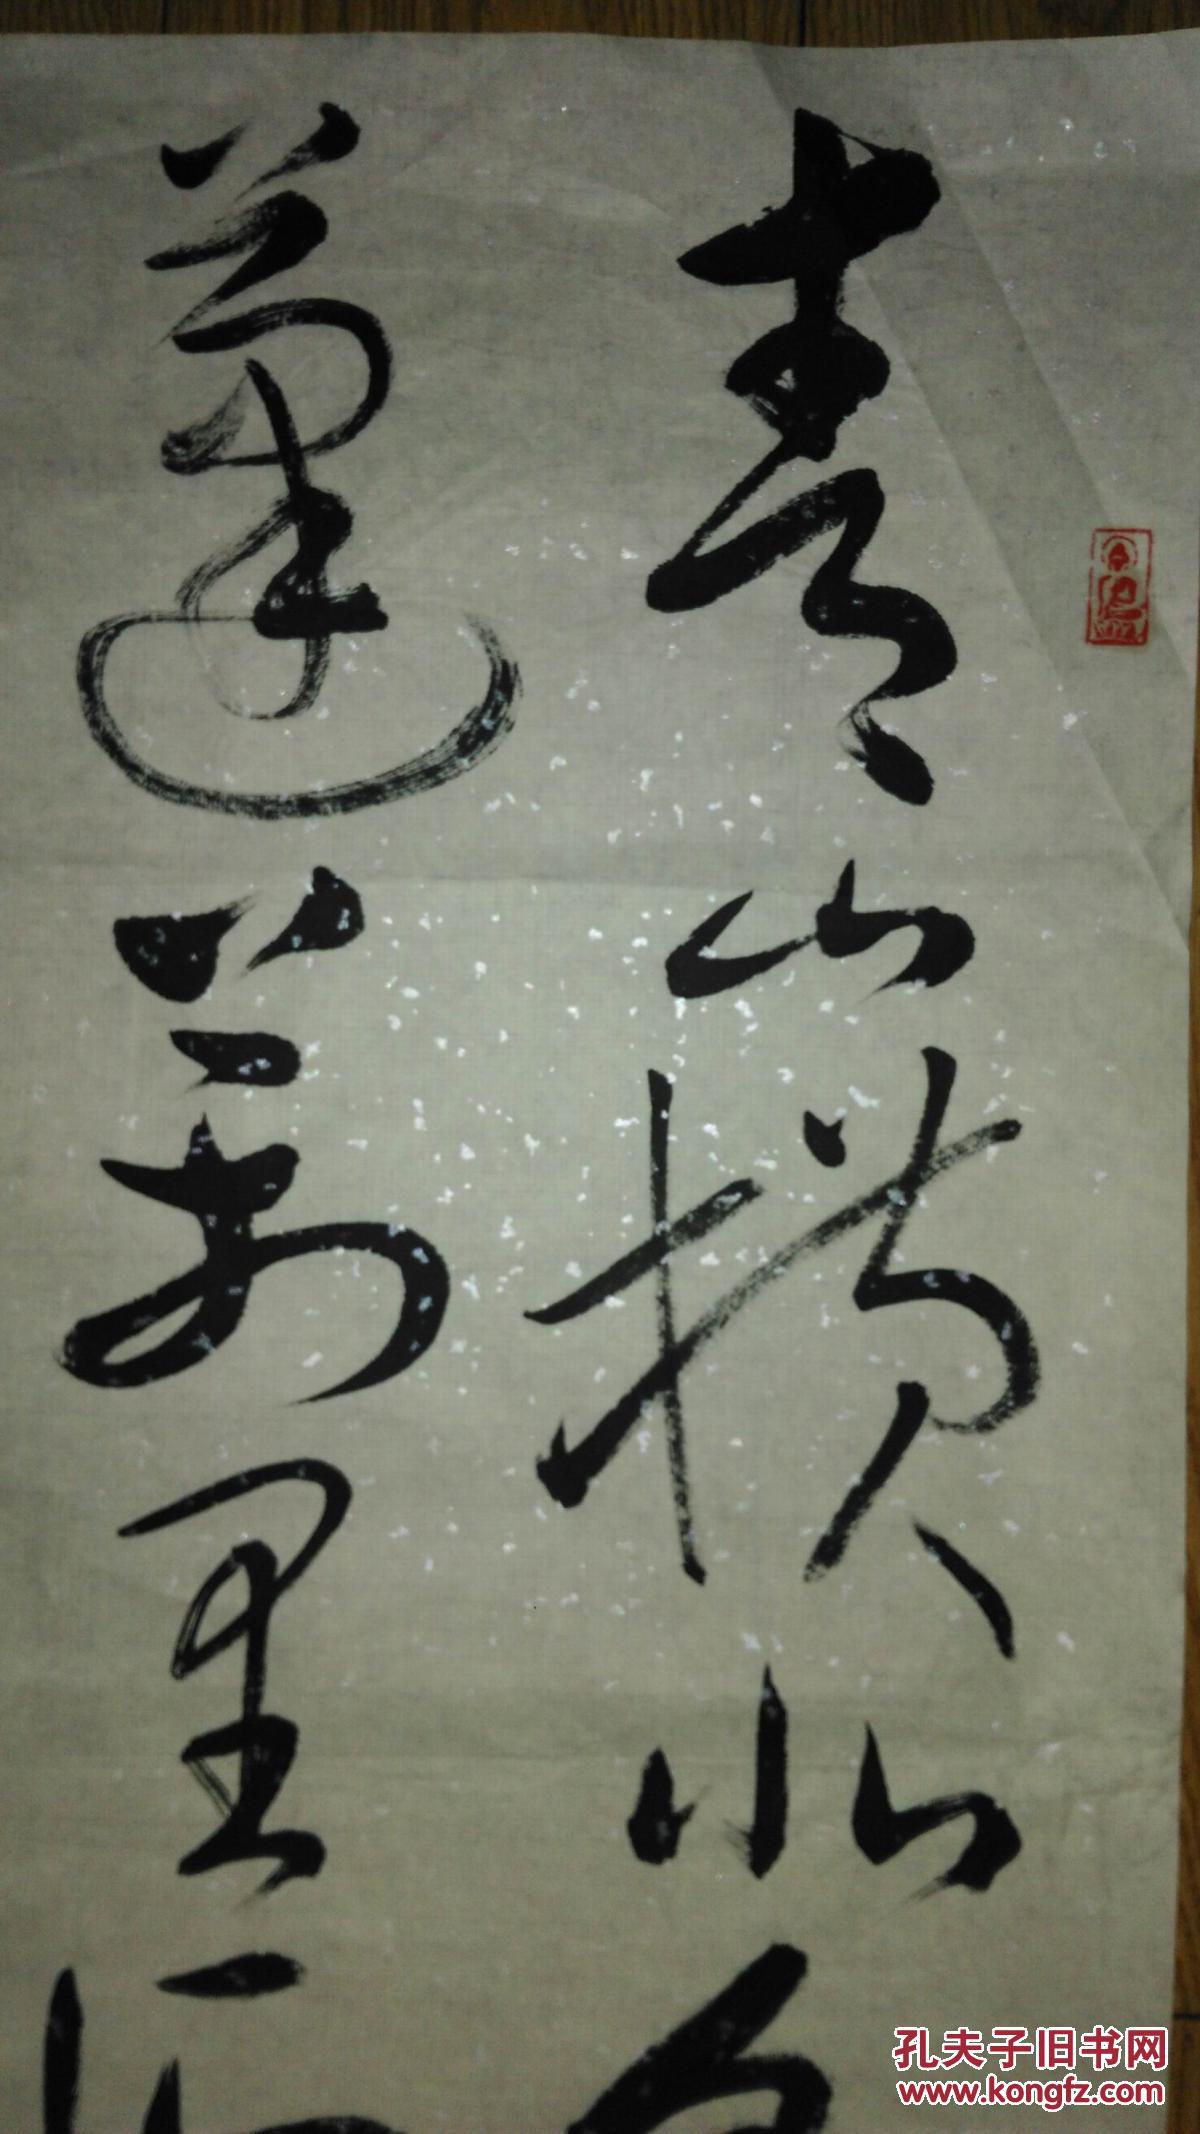 青山横北
蓬萬里
孔夫子旧书网
www.kongfz.com